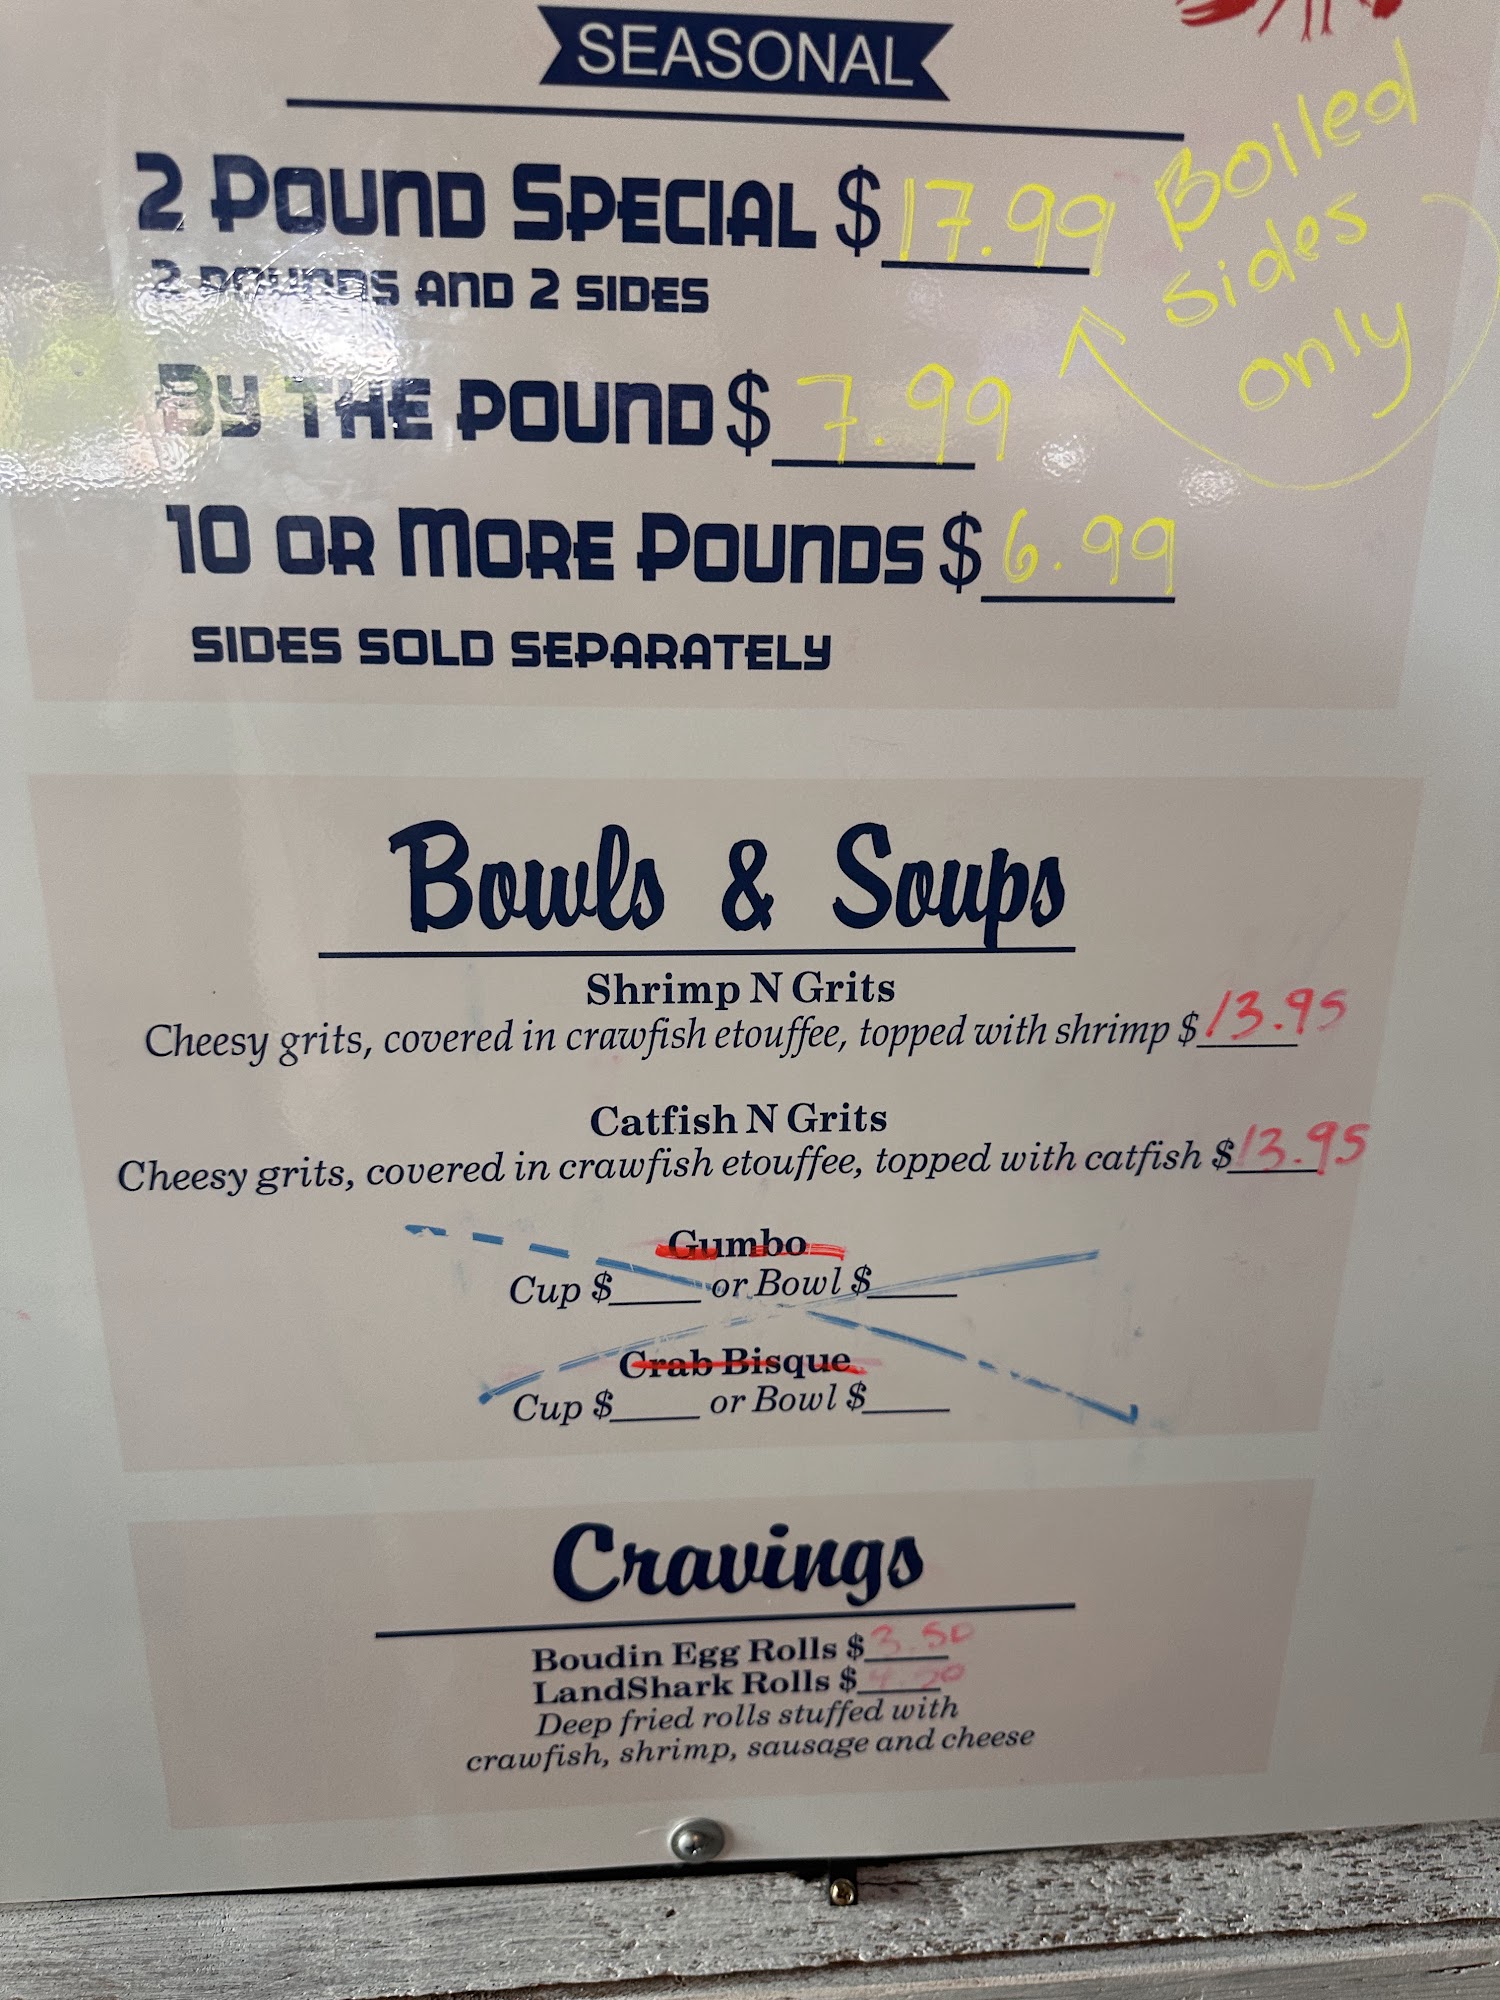 SEASONAL
2 POUND SPECIAL $17.99
2 POUNDS AND 2 SIDES
Boiled
sides
only
BY THE POUND $7.99
10 OR MORE POUNDS $6.99
SIDES SOLD SEPARATELY
Bowls & Soups
Shrimp N Grits
Cheesy grits, covered in crawfish etouffee, topped with shrimp $13.95
Catfish N Grits
Cheesy grits, covered in crawfish etouffee, topped with catfish $13.95
Gumbo
Cup $_____ or Bowl $_____
Crab Bisque
Cup $_____ or Bowl $_____
Cravings
Boudin Egg Rolls $3.50
LandShark Rolls $4.20
Deep fried rolls stuffed with
crawfish, shrimp, sausage and cheese